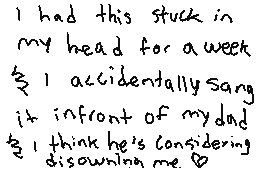 I had this stuck in
my head for a week
& I accidentally sang
it infront of my dad
& I think he's considering
disowning me ♡